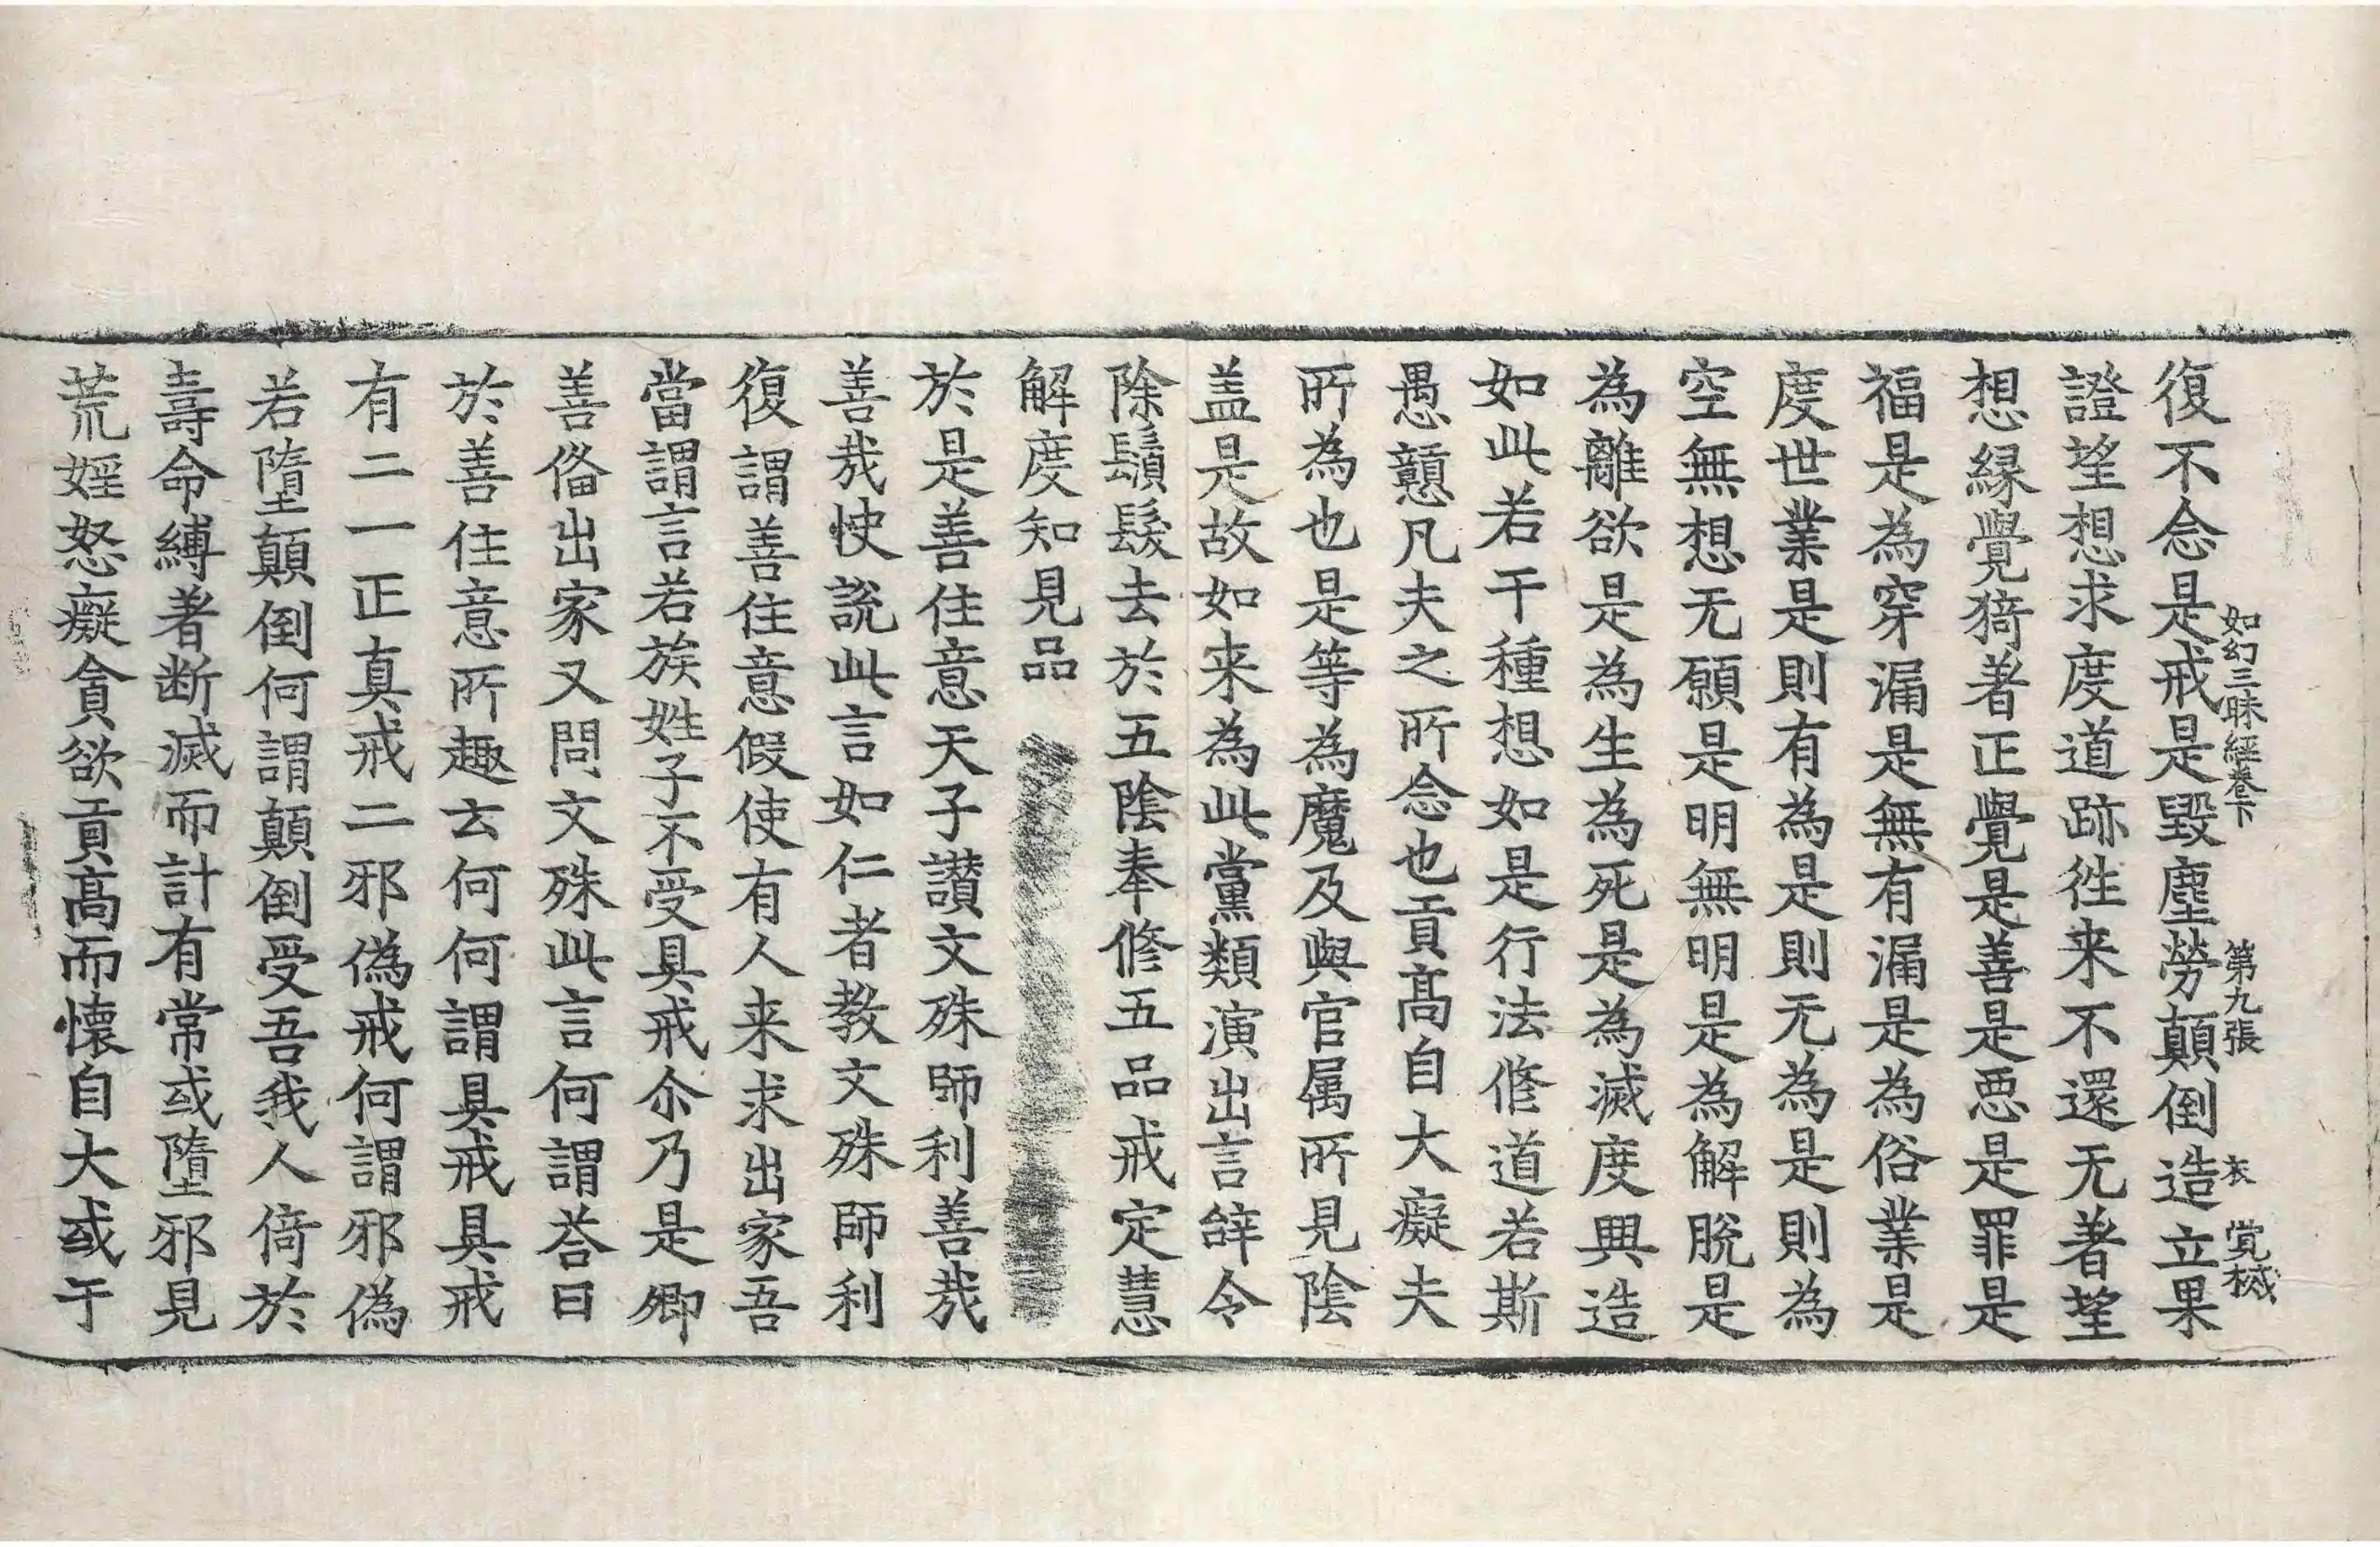 如幻三昧經卷下 第九張 衣
復不念是戒是毀塵勞顛倒造立果
證望想求度道跡徃来不還无著望
想縁覺猗著正覺是善是惡是罪是
福是為穿漏是無有漏是為俗業是
度世業是則有為是則无為是則為
空無想无願是明無明是為解脫是
為離欲是為生為死是為滅度興造
如此若干種想如是行法修道若斯
愚戇凡夫之所念也貢髙自大癡夫
所為也是等為魔及與官属所見陰
盖是故如来為此黨類演出言辝令
除鬚髮去於五陰奉修五品戒定慧
解度知見品
於是善住意天子讃文殊師利善㦲
善㦲快說此言如仁者教文殊師利
復謂善住意假使有人来求出家吾
當謂言若族姓子不受具戒尒乃是卿
善俻出家又問文殊此言何謂荅曰
於善住意所趣去何何謂具戒具戒
有二一正真戒二邪偽戒何謂邪偽
若墮顛倒何謂顛倒受吾我人倚於
壽命縛著断滅而計有常或墮邪見
荒婬怒癡貪欲貢髙而懐自大或于